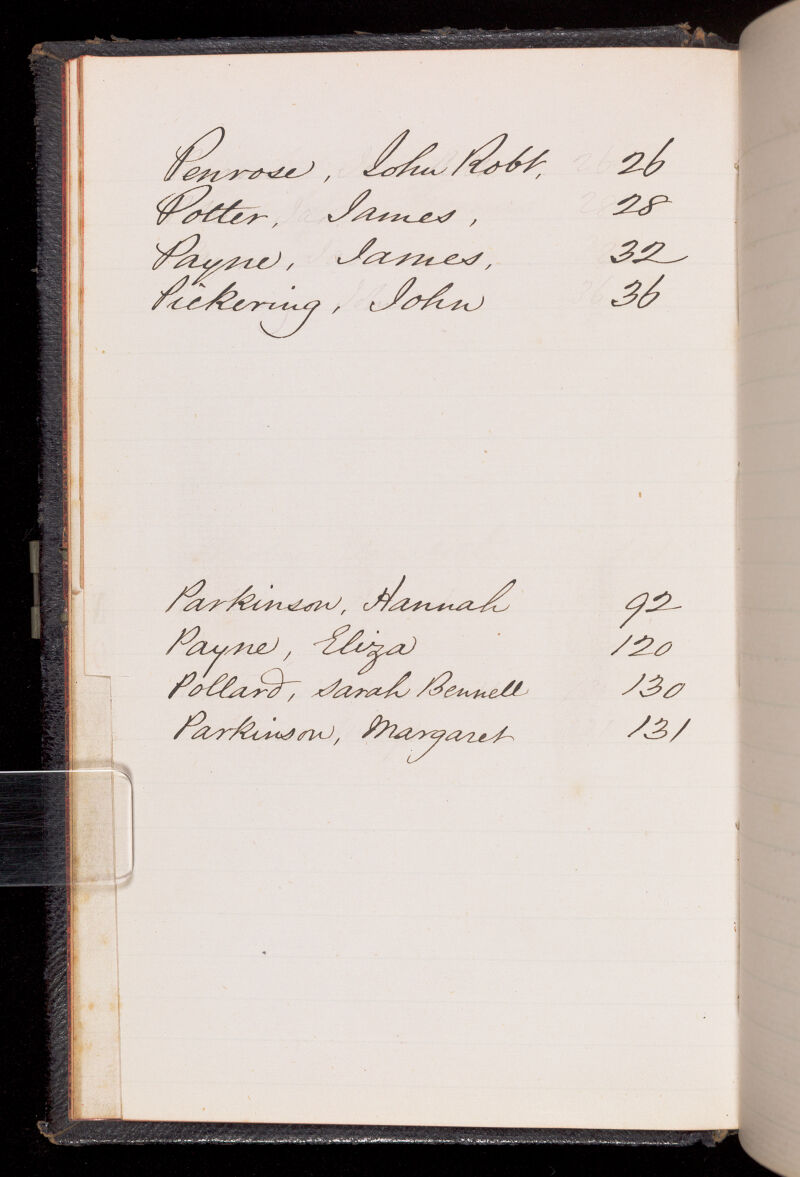 Penrose, John Robt. 26
Potter, James, 28
Payne, James, 32
Pickering, John 36
Parkinson, Hannah 92
Payne, Eliza 120
Pollard, Sarah Bennell 130
Parkinson, Margaret 131